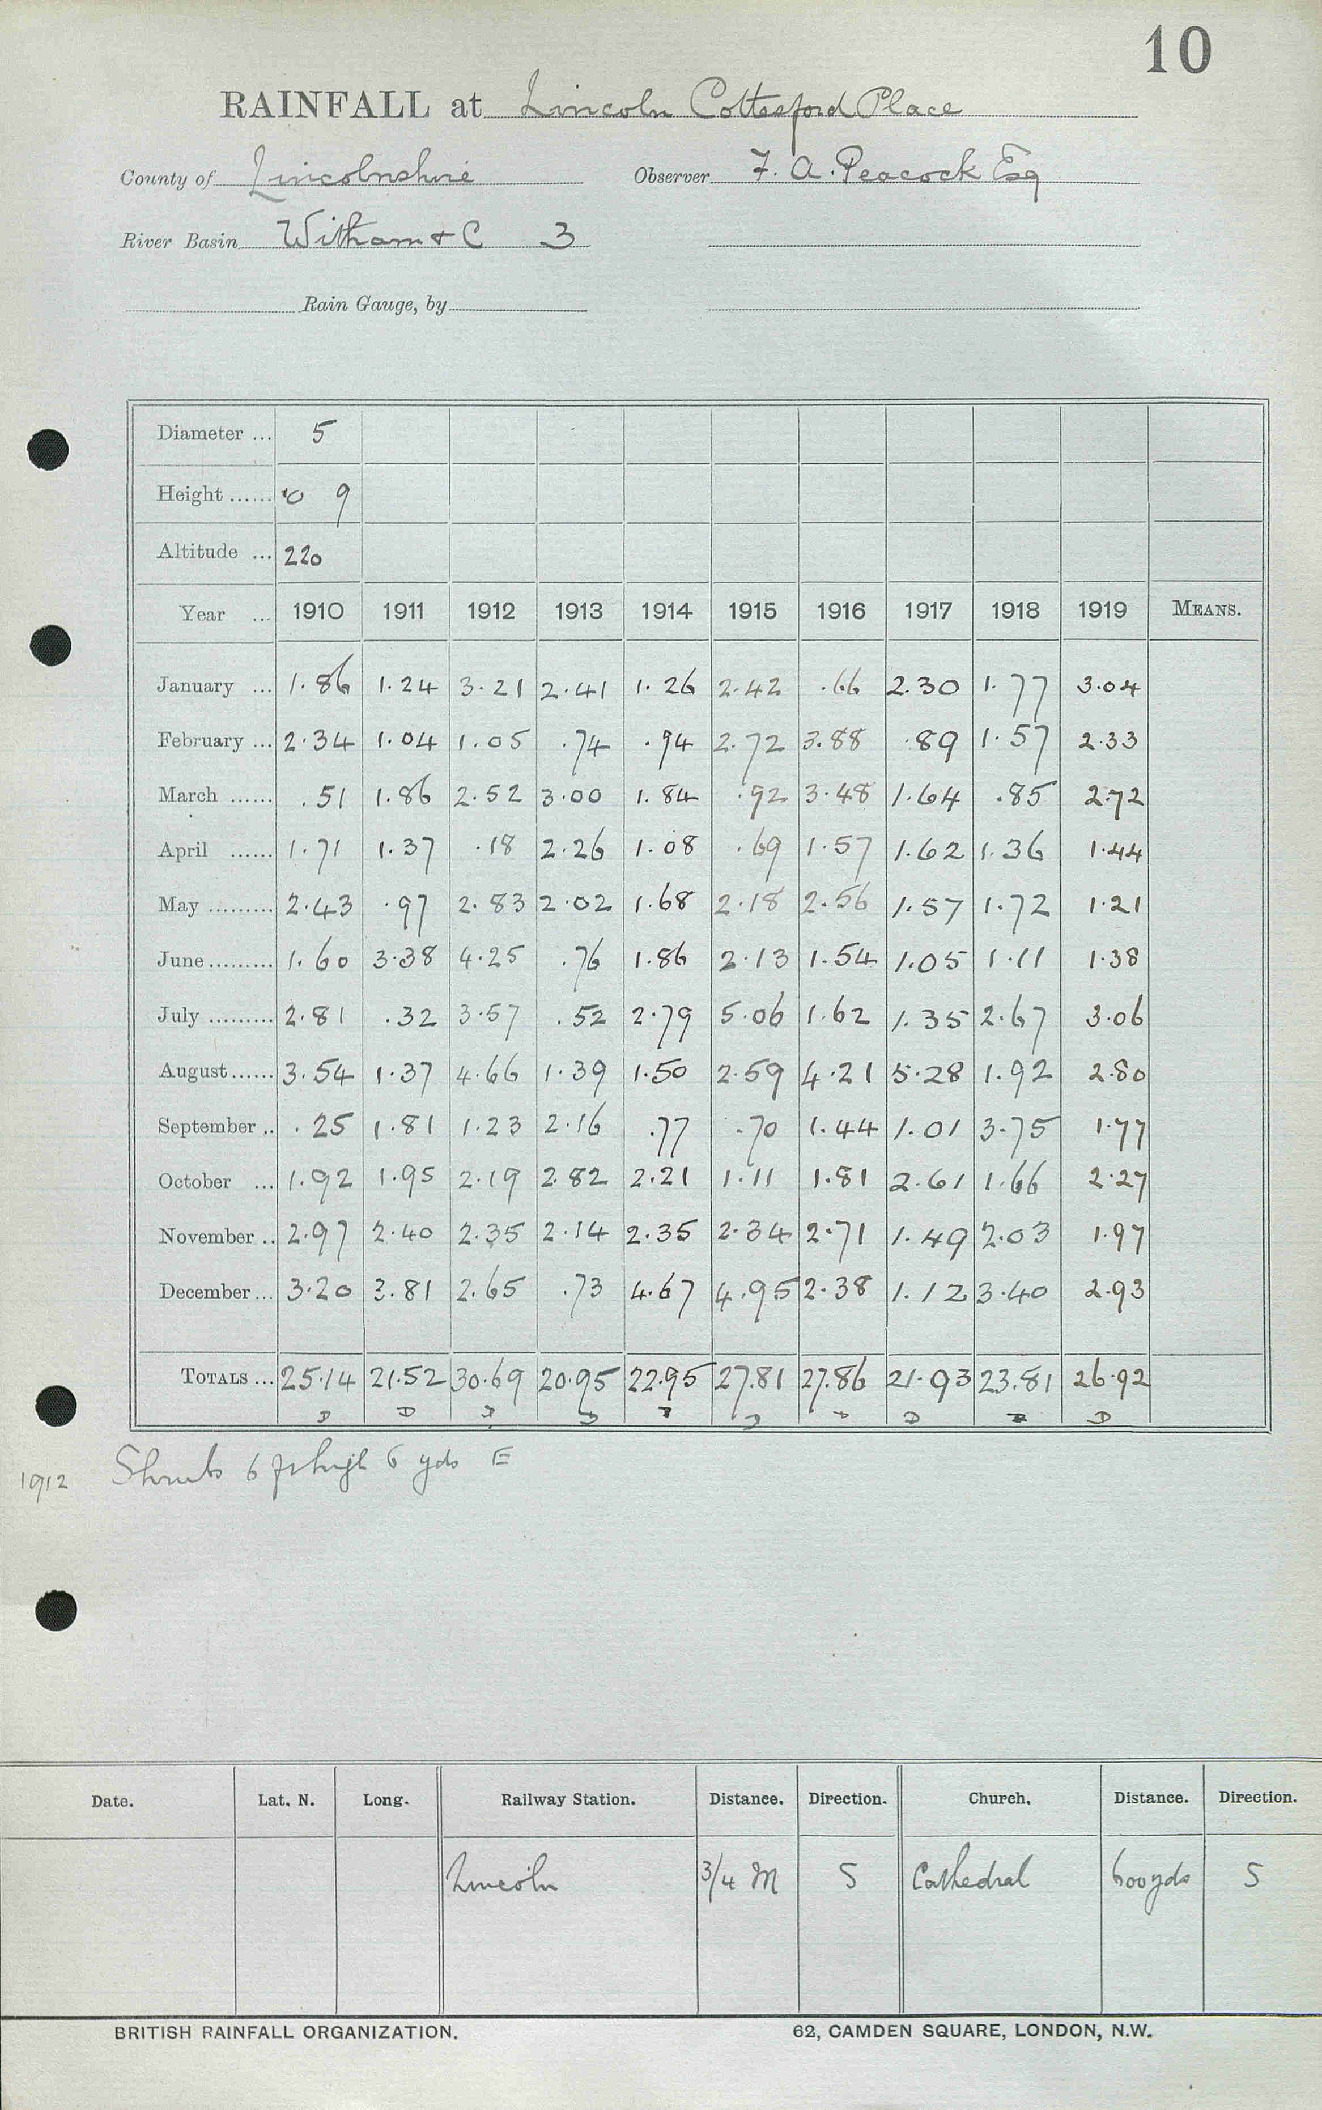 10
RAINFALL at Lincoln Cottesford Place
County of Lincolnshire Observer F. A. Peacock Esq
River Basin Witham & C 3
Rain Gauge, by
Diameter ... 5
Height ...... 0 9
Altitude ... 220
Year ... 1910 1911 1912 1913 1914 1915 1916 1917 1918 1919 MEANS.
January ... 1.86 1.24 3.21 2.41 1.26 2.42 .66 2.30 1.77 3.04
February ... 2.34 1.04 1.05 .74 .94 2.72 3.88 .89 1.57 2.33
March ...... .51 1.86 2.52 3.00 1.84 .92 3.48 1.64 .85 2.72
April ...... 1.71 1.37 .18 2.26 1.08 .69 1.57 1.62 1.36 1.44
May ......... 2.43 .97 2.83 2.02 1.68 2.18 2.56 1.57 1.72 1.21
June ......... 1.60 3.38 4.25 .76 1.86 2.13 1.54 1.05 1.11 1.38
July ......... 2.81 .32 3.57 .52 2.79 5.06 1.62 1.35 2.67 3.06
August ...... 3.54 1.37 4.66 1.39 1.50 2.59 4.21 5.28 1.92 2.80
September .. .25 1.81 1.23 2.16 .77 .70 1.44 1.01 3.75 1.77
October ... 1.92 1.95 2.19 2.82 2.21 1.11 1.81 2.61 1.66 2.27
November .. 2.97 2.40 2.35 2.14 2.35 2.34 2.71 1.49 2.03 1.97
December ... 3.20 3.81 2.65 .73 4.67 4.95 2.38 1.12 3.40 2.93
TOTALS ... 25.14 21.52 30.69 20.95 22.95 27.81 27.86 21.93 23.81 26.92
D D D D D D D D D D
1912 Shrubs 6 ft high 6 yds E
Date. Lat. N. Long. Railway Station. Distance. Direction. Church. Distance. Direction.
Lincoln 3/4 M S Cathedral 600 yds S
BRITISH RAINFALL ORGANIZATION. 62, CAMDEN SQUARE, LONDON, N.W.